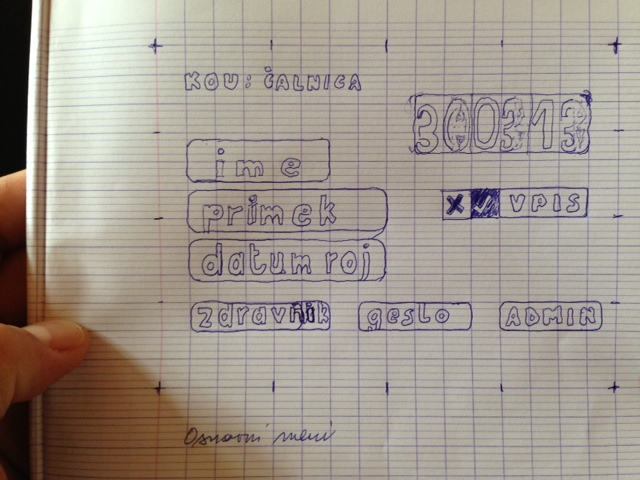 KOU: ČALNICA
300313
ime
priimek
X ✓ VPIS
datum roj
zdravnik geslo ADMIN
Osnovni meni